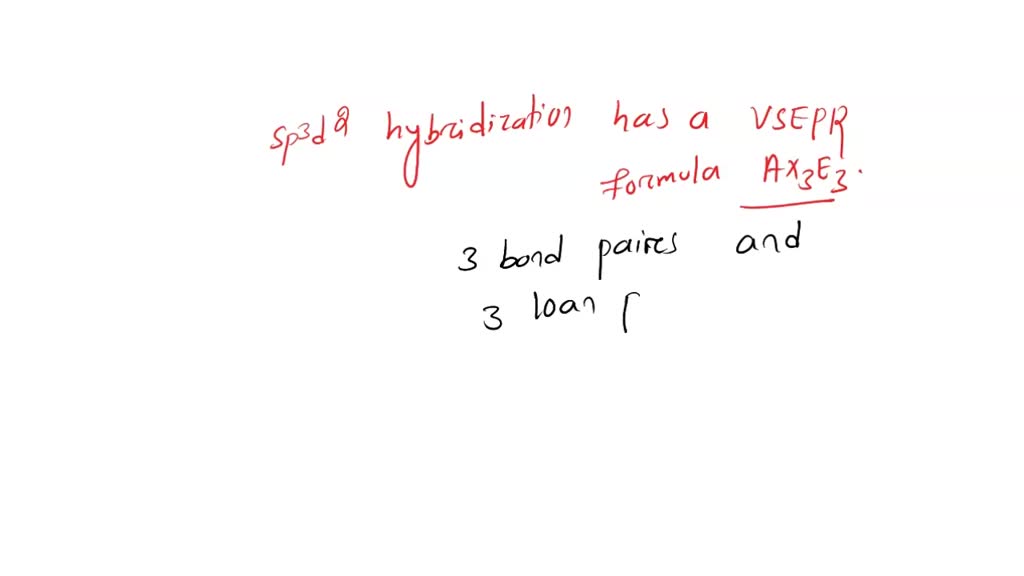 sp³d² hybridization has a VSEPR
formula AX₃E₃.
3 bond paires and
3 loan p